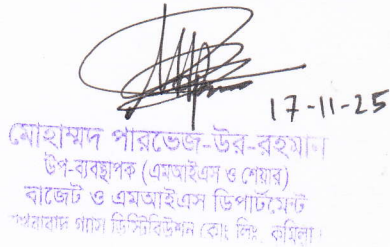 17-11-25
মোহাম্মদ পারভেজ-উর-রহমান
উপ-ব্যবস্থাপক (এমআইএস ও শেয়ার)
বাজেট ও এমআইএস ডিপার্টমেন্ট
গ্যাস ডিস্ট্রিবিউশন কোং লিঃ, কুমিল্লা।